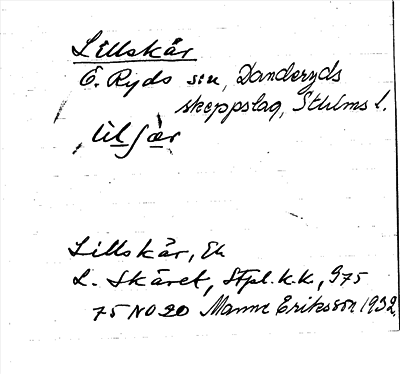 Lillskär
Ö. Ryds sn, Danderyds
skeppslag, Sthlms l.
lilʃær
Lillskär, Ek
L. Skäret, Stpl. k.k., G75
75 NO 20 Manne Eriksson 1932.